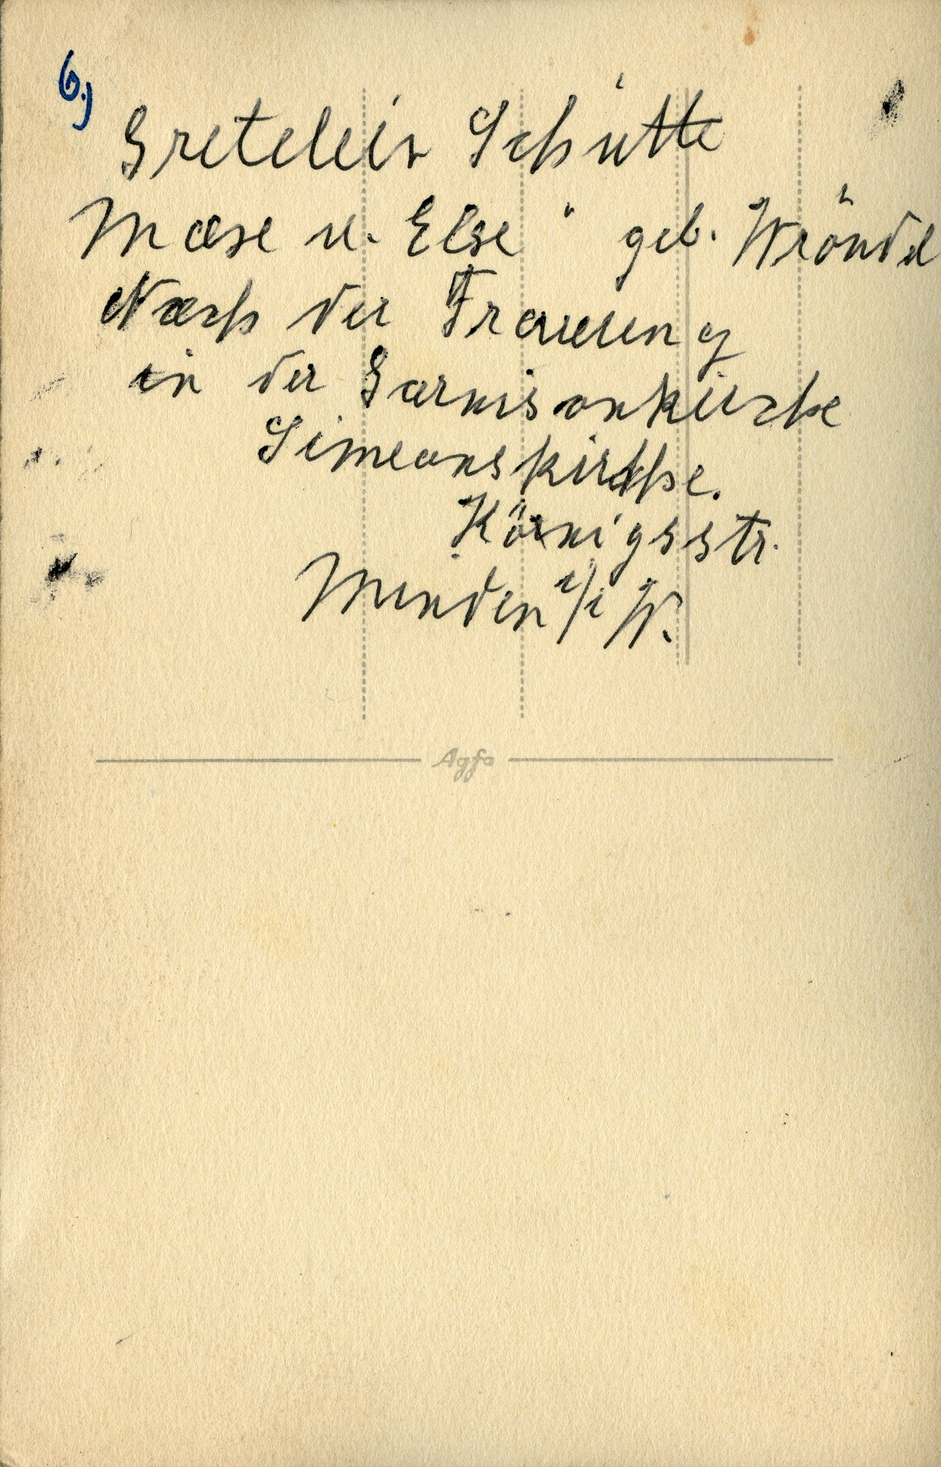 6.)
Gretelein Schütte
Mase u. Else " geb. Wröndel
Nach der Trauung
in der Garnisonkirche
Simeonskirche.
Königsstr.
Minden i/W.
Agfa